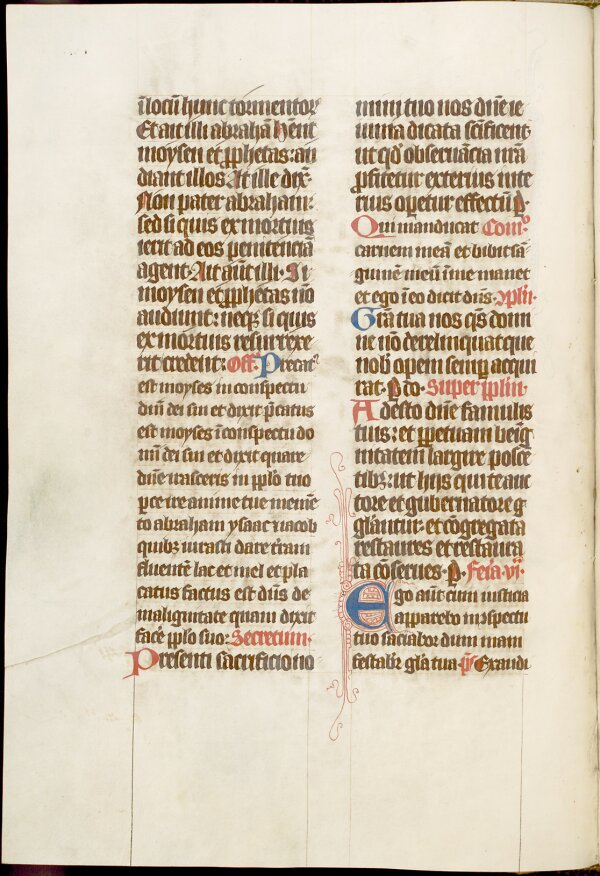 ī locū hunc tormentor̄
Et ait illi abrahā hēnt
moysen et ꝓphetas: au
diant illos. At ille dix̄.
Non pater abraham:
sed si quis ex mortuis
ierit ad eos penitenciā
agent. Ait aūt illi. Si
moysen et ꝓphetas nō
audiunt: neqꝫ si quis
ex mortuis resurrexe
rit credent: Off. Precat᷒
est moyses in conspectu
dn̄i dei sui et dixit p̄catus
est moyses ī conspectu do
mī dei sui et dixit quare
dn̄e irasceris in pplo tuo
parce ire anime tue memē
to abraham ysaac iacob
quibꝫ iurasti dare t̄ram
fluentē lac et mel et pla
catus factus est dn̄s de
malignitate quam dixit
facē pplo suo: Secretum.
Presenti sacrificio no
mini tuo nos dn̄e ie
iunia dicata sc̄ificent.
ut qd̓ obseruācia nrā
ꝓfitetur exterius inte
rius oꝑetur effectū ꝑ.
Qui manducat Com̄o
carnem meā et bibit sā
guinē meū ī me manet
et ego ī eo dicit dn̄s. 9plin̄.
Grā tua nos qs̄ domi
ne nō derelinquat que
nob̓ opem semꝑ acqui
rat. ꝑ do. Super pplm̄.
Adesto dn̄e famulis
tuis: et ꝑpetuam benig
nitatem largire posce
tibꝫ: ut hijs qui te auc
tore et gubernatore g
glāntur. et cōgregata
restaures et restaura
ta cōserues. ꝑ. Feria vi.
Ego aūt cum iusticia
apparebo in 9spectu
tuo saciabor dum mani
festabit᷒ glā tua. ps̄ Exaudi